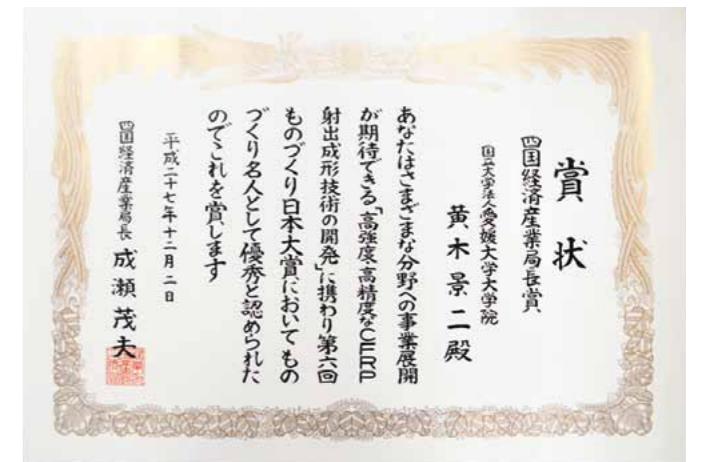 賞状
四国経済産業局長賞
国立大学法人愛媛大学大学院
黄木景二殿
あなたはさまざまな分野への事業展開
が期待できる「高強度・高精度なCFRP
射出成形技術の開発」に携わり第六回
ものづくり日本大賞においてもの
づくり名人として優秀と認められた
のでこれを賞します
平成二十七年十二月二日
四国経済産業局長 成瀬茂夫